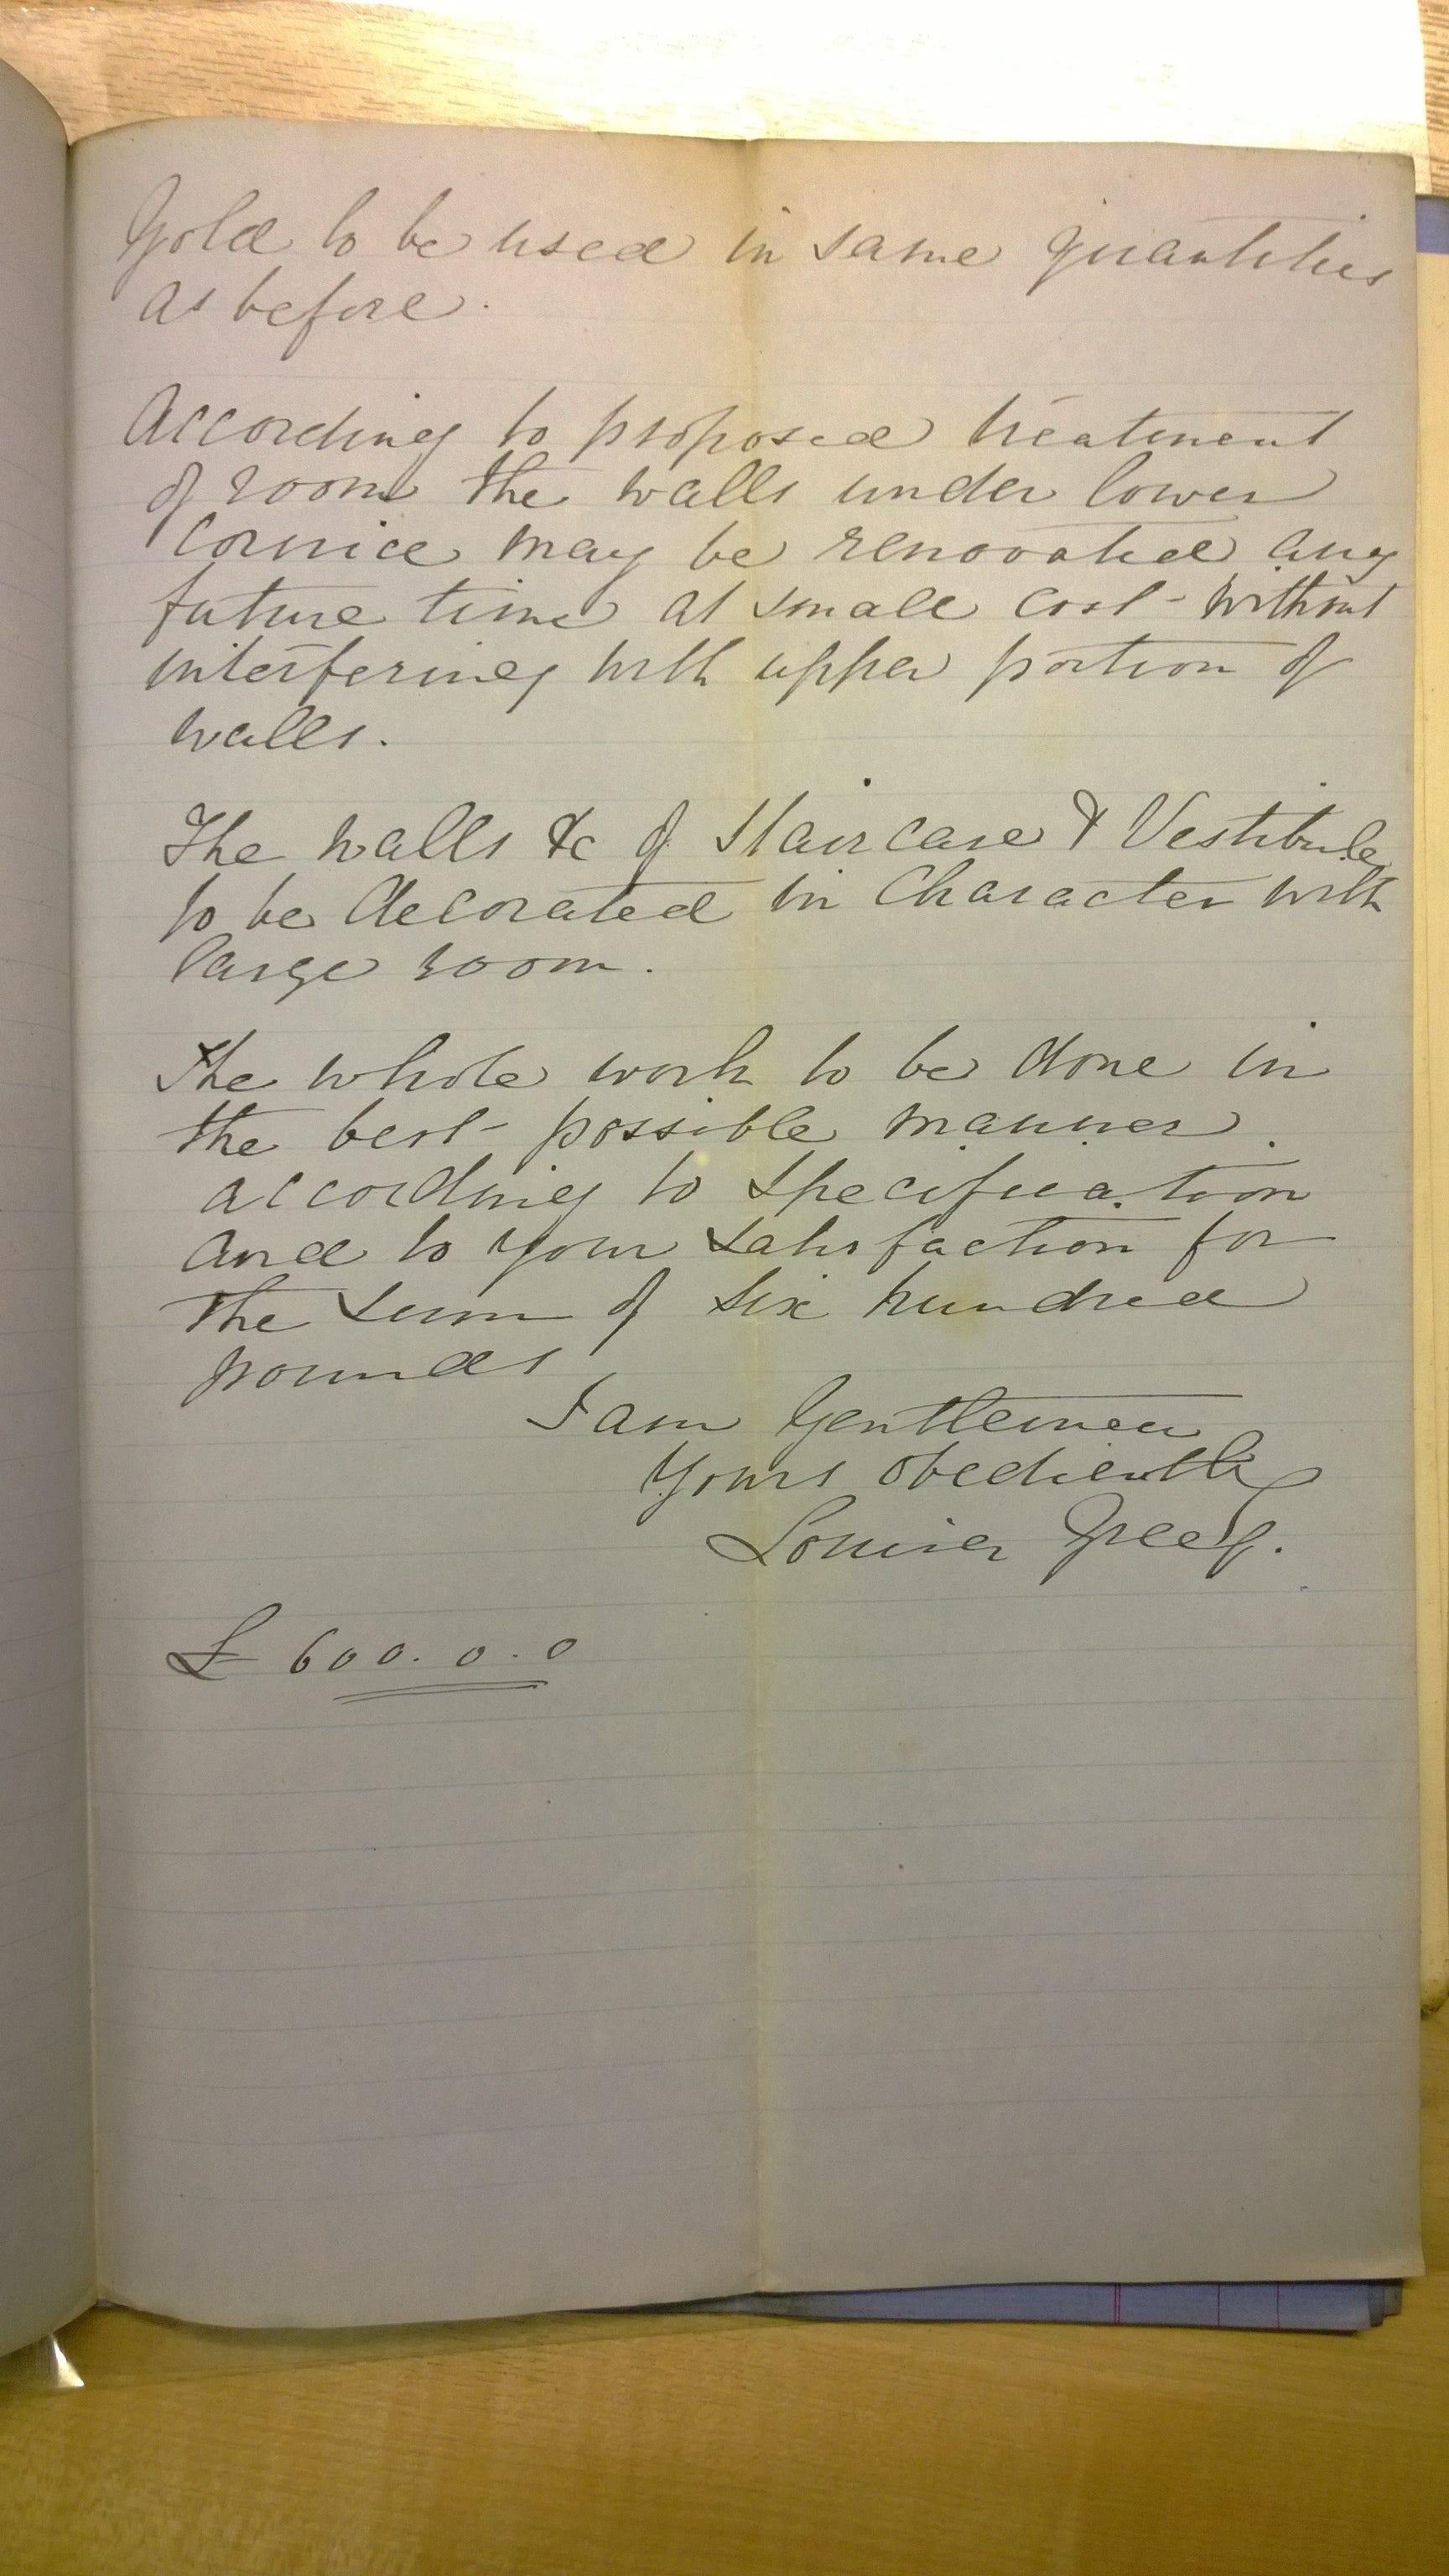 Gold to be used in same quantities
as before.
According to proposed treatment
of room the walls under lower
Cornice may be renovated any
future time at small cost - without
interfering with upper portion of
walls.
The walls &c of Staircase & Vestibule
to be decorated in Character with
large room.
The whole work to be done in
the best possible manner.
according to specification
and to your satisfaction for
the sum of six hundred
pounds
I am Gentlemen
Yours obediently
Louisa
£ 600. 0. 0